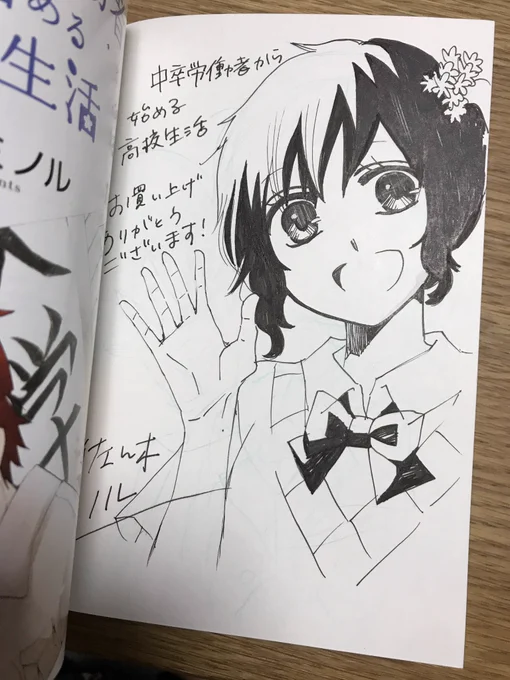 める
生活
ミノル
nts
学
中卒労働者から
始める
高校生活
お買い上げ
ありがとう
ございます!
佐々木
ノル